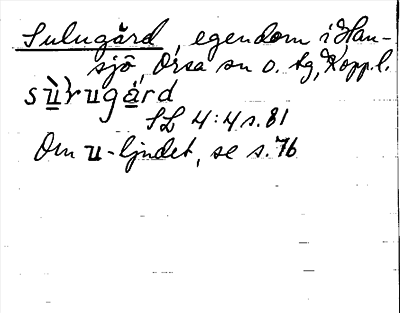 Sulugård, egendom i Han-
sjö, Orsa sn o. tg, Kopp.l.
sùrugård
SL 4:4 s.81
Om u-ljudet, se s.76